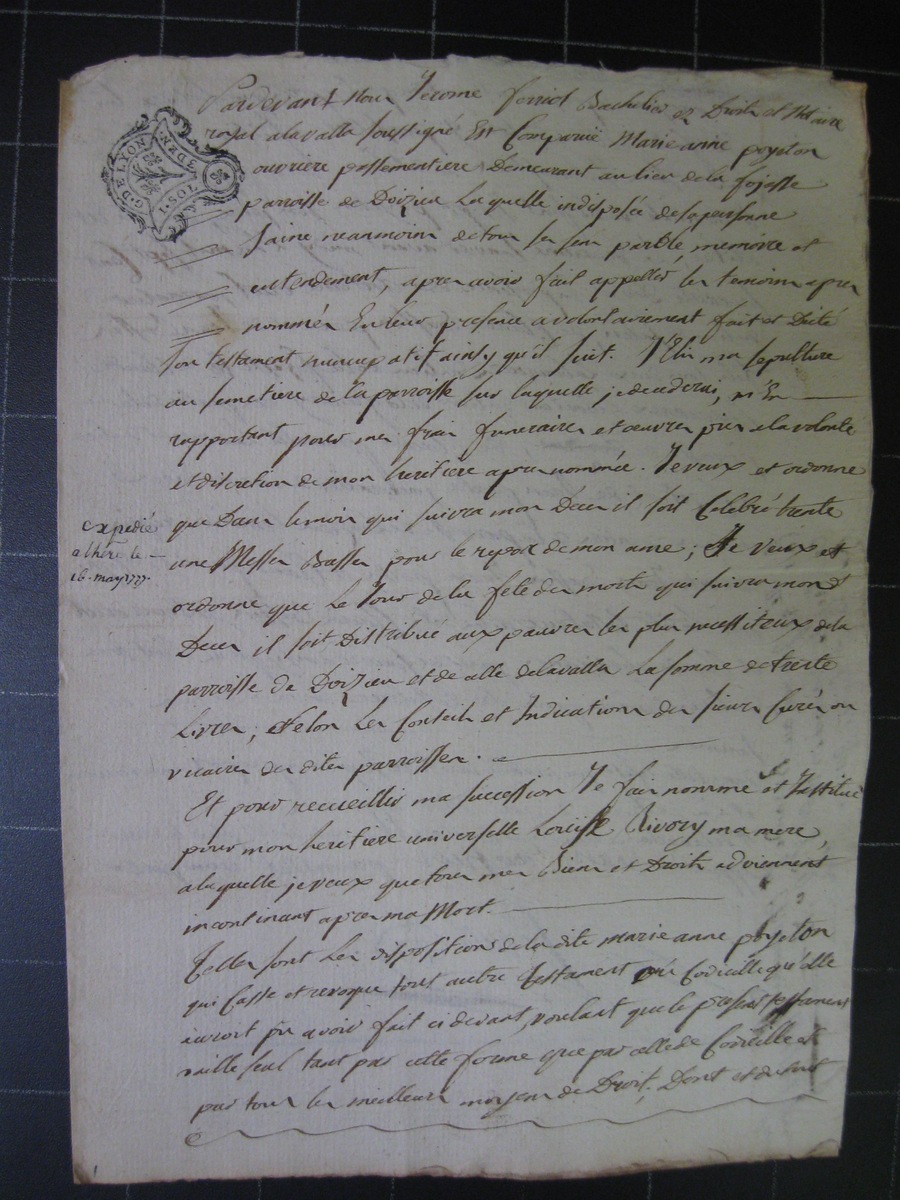 G. DE LYON
3 DEN.
1. SOL
Pardevant Nous Jerome forriol Bachelier ez Droits et Notaire
royal a lavalla soussigné Est Comparüe Marie anne peyston
ouvriere passementiere Demeurant au lieu de la fojasse
parroisse de Doizieu Laquelle indisposée de sa personne
saine neanmoins de tous ses sens parolle memoire et
entendement, apres avoir fait appeller les temoins apres
nommés En leur presence a volontairement fait et Dicté
son testament nuncupatif ainsy qu'il suit. J'Elis ma sepulture
au semetiere de la parroisse sur laquelle je decederai, m'En
rapportant pour mes frais funeraires et œuvres pies a la volonté
et discretion de mon heritiere apres nommée. Je veux et ordonne
que Dans le mois qui suivra mon Deces il soit Celebré trente
une Messes Basses pour le repos de mon ame; Je veux et
ordonne que Le Jour de la fete des morts qui suivra mon d
Deces il soit Distribué aux pauvres les plus necessiteux de la
parroisse de Doizieu et de celle de lavalla La somme de trente
Livres, selon Les Conseils et Indications des sieurs Curés ou
vicaires des dites parroisses.
Et pour recueillir ma succession Je fais nomme et Institue
pour mon heritiere universelle Loüise Rivory ma mere,
a laquelle je veux que tous mes Biens et Droits adviennent
incontinant apres ma Mort.
Telles sont Les dispositions de la dite marie anne peyston
qui Casse et revoque tout autre Testament ou Codicille qu'elle
auroit pu avoir fait ci devant, voulant que le present testament
vaille seul tant par cette forme que par celle de Codicille et
par tous les meilleurs moyens de Droit, Dont et du tout
expedié
a l'here le
16. may 1777.